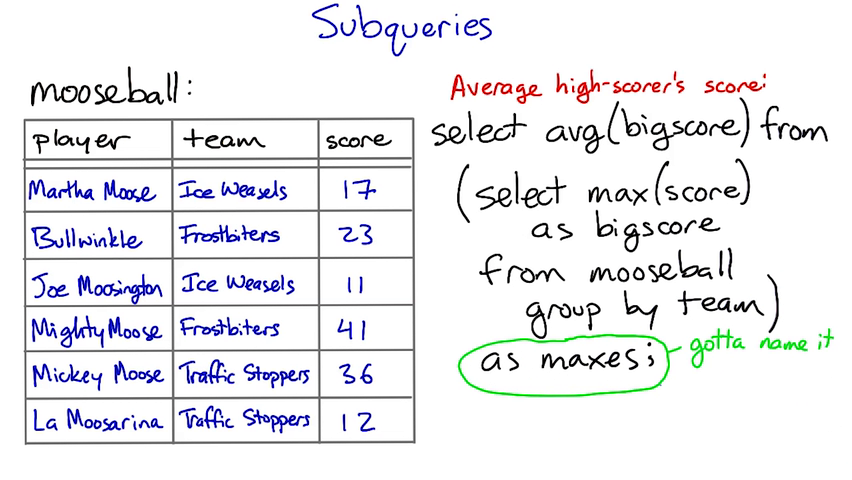 Subqueries
mooseball:
player team score
Martha Moose Ice Weasels 17
Bullwinkle Frostbiters 23
Joe Moosington Ice Weasels 11
Mighty Moose Frostbiters 41
Mickey Moose Traffic Stoppers 36
La Moosarina Traffic Stoppers 12
Average high-scorer's score:
select avg(bigscore) from
(select max(score)
as bigscore
from mooseball
group by team)
as maxes;
gotta name it